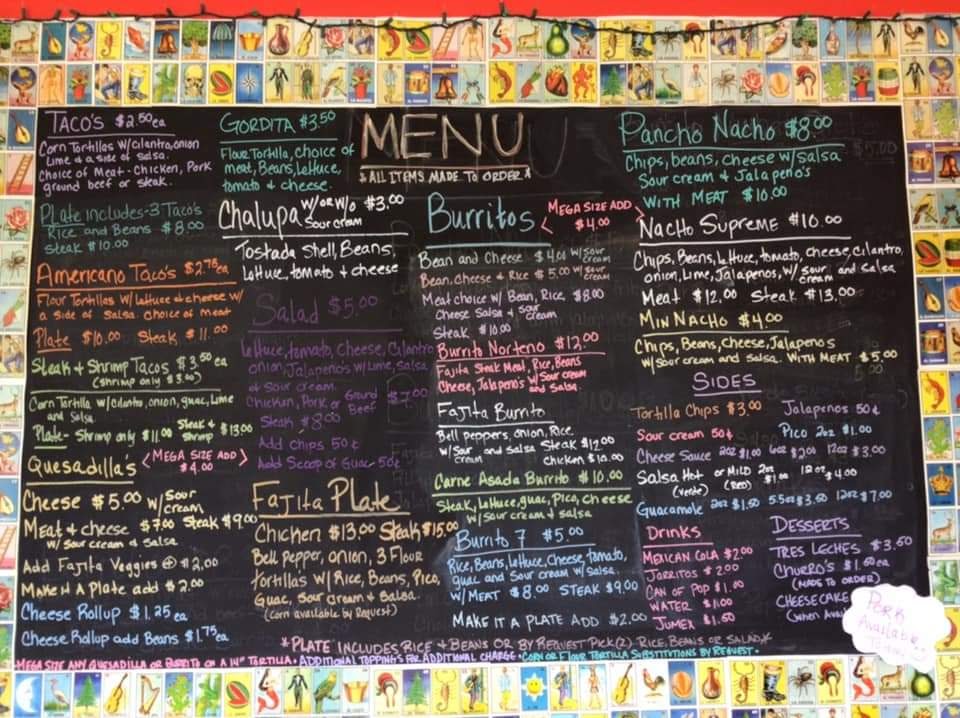 MENU
*ALL ITEMS MADE TO ORDER*
TACO'S $2.50ea
Corn Tortillas w/cilantro, onion
Lime & a side of salsa.
Choice of Meat - Chicken, Pork
ground beef or steak.
Plate includes - 3 Taco's
Rice and Beans $8.00
Steak $10.00
Americano Taco's $2.75ea
Flour Tortillas w/ lettuce & cheese w/
a side of Salsa. choice of meat
Plate $10.00 Steak $11.00
Steak & Shrimp Tacos $3.50 ea
(shrimp only $3.00)
Corn Tortilla w/cilantro, onion, guac, Lime
and Salsa
Plate - Shrimp only $11.00 Steak & Shrimp $13.00
Quesadilla's <MEGA SIZE ADD $4.00>
Cheese $5.00 w/sour cream
Meat & cheese $7.00 Steak $9.00
w/ Sour cream & Salsa
Add Fajita Veggies $2.00
Make it A Plate add $2.00
Cheese Rollup $1.25 ea
Cheese Rollup add Beans $1.75 ea
GORDITA $3.50
Flour Tortilla, choice of
meat, Beans, lettuce,
tomato & cheese.
Chalupa w/ or w/o sour cream $3.00
Tostada Shell, Beans,
Lettuce, tomato & cheese
Salad $5.00
Lettuce, tomato, Cheese, Cilantro
onion, Jalapenos w/ Lime, Salsa
& Sour cream.
Chicken, Pork or Ground Beef $7.00
Steak $8.00
Add Chips 50¢
Add Scoop of Guac 50¢
Fajita Plate
Chicken $13.00 Steak $15.00
Bell pepper, onion, 3 Flour
tortillas w/ Rice, Beans, Pico,
Guac, Sour cream & Salsa.
(corn available by Request)
Burritos <MEGA SIZE ADD $4.00>
Bean and Cheese $4.00 w/ sour cream
Bean, Cheese & Rice $5.00 w/ sour cream
Meat choice w/ Bean, Rice, $8.00
Cheese Salsa & Sour cream
Steak $10.00
Burrito Norteno $12.00
Fajita Steak Meat, Rice, Beans
Cheese, Jalapeno's w/ Sour cream and Salsa
Fajita Burrito
Bell peppers, onion, Rice
w/ Sour cream and Salsa Steak $12.00
Chicken $10.00
Carne Asada Burrito $10.00
Steak, lettuce, guac, Pico, cheese
w/ Sour cream & salsa
Burrito 7 $5.00
Rice, Beans, lettuce, Cheese, tomato,
guac and Sour cream w/ Salsa.
w/ MEAT $8.00 STEAK $9.00
MAKE IT A PLATE ADD $2.00
Pancho Nacho $8.00
Chips, beans, cheese w/ salsa
Sour cream & Jalapeno's
WITH MEAT $10.00
Nacho Supreme $10.00
Chips, Beans, Lettuce, tomato, cheese, cilantro,
onion, Lime, Jalapenos, w/ sour cream and Salsa
Meat $12.00 Steak $13.00
MINI NACHO $4.00
Chips, Beans, Cheese, Jalapenos
w/ Sour cream and Salsa. WITH MEAT $5.00
SIDES
Tortilla Chips $3.00
Sour cream 50¢
Jalapenos 50¢
Pico 2oz $1.00
Cheese Sauce 2oz $1.00 6oz $2.00 12oz $3.00
Salsa Hot (verde) or MILD (Red) 2oz $1.00 12oz $4.00
Guacamole 2oz $1.50 5.5oz $3.50 12oz $7.00
Drinks
MEXICAN COLA $2.00
JARRITOS $2.00
CAN OF POP $1.00
WATER $1.00
JUMEX $1.50
DESSERTS
TRES LECHES $3.50
CHURRO'S $1.50 ea
(MADE TO ORDER)
CHEESECAKE
(when Avai
PORK
Available
Today
*PLATE INCLUDES RICE & BEANS OR BY REQUEST PICK (2) RICE, BEANS OR SALAD*
MEGA SIZE ANY QUESADILLA OR BURRITO ON A 14" TORTILLA • ADDITIONAL TOPPINGS FOR ADDITIONAL CHARGE • CORN OR FLOUR TORTILLA SUBSTITUTIONS BY REQUEST •